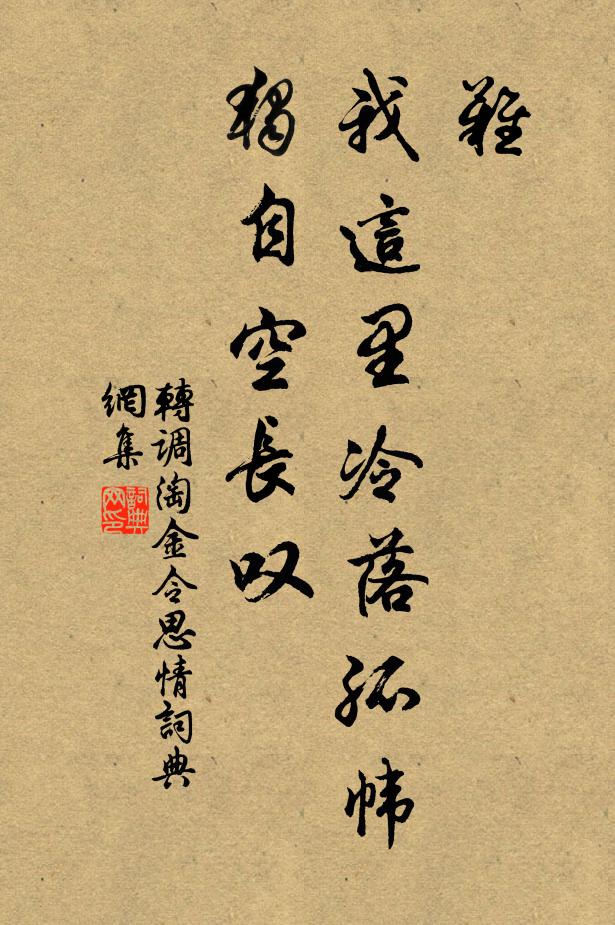 難
我這里冷落孤帏
獨自空長叹
轉调淘金令思情詞典
網集
詞典
网印